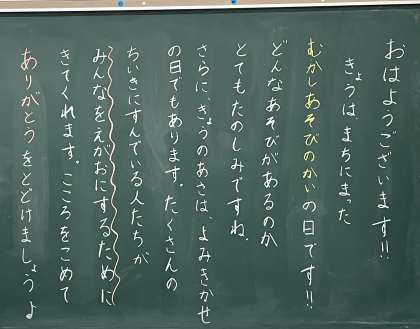 おはようございます!!
きょうは、まちにまった
むかしあそびのかいの日です!!
どんなあそびがあるのか
とてもたのしみですね。
さらに、きょうのあさは、よみきかせ
の日でもあります。たくさんの
ちいきにすんでいる人たちが
みんなをえがおにするために
きてくれます。こころをこめて
ありがとうをとどけましょうよ